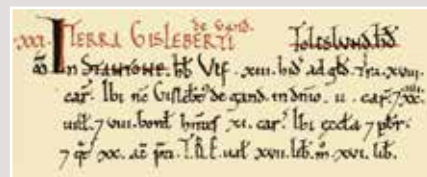 XXI. TERRA GISLEBERTI de Gand. Toleslund hd
In STANTONE. hb Vlf. xiii. hid ad gld. Tra. xviii.
car. Ibi nc Gislebt de gand. in dnio. ii. car. 7
uill. 7 viii. bord hntes xi. car. Ibi eccla 7 pbr.
7 qt xx. ac pti. T.R.E. ual xvii. lib. m. xvi. lib.